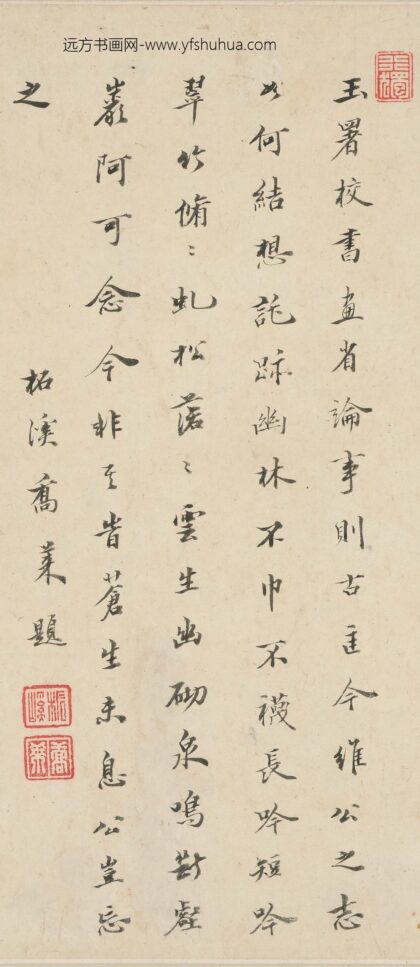 远方书画网-www.yfshuhua.com
玉署校書畫省論事則古匡今維公之志
如何結想託跡幽林不巾不襪長吟短吟
翠竹脩〻虬松落〻雲生幽砌泉鳴斷壑
巖阿可念今非其旹蒼生未息公豈忘
之
柘溪喬萊題
柘溪
喬萊